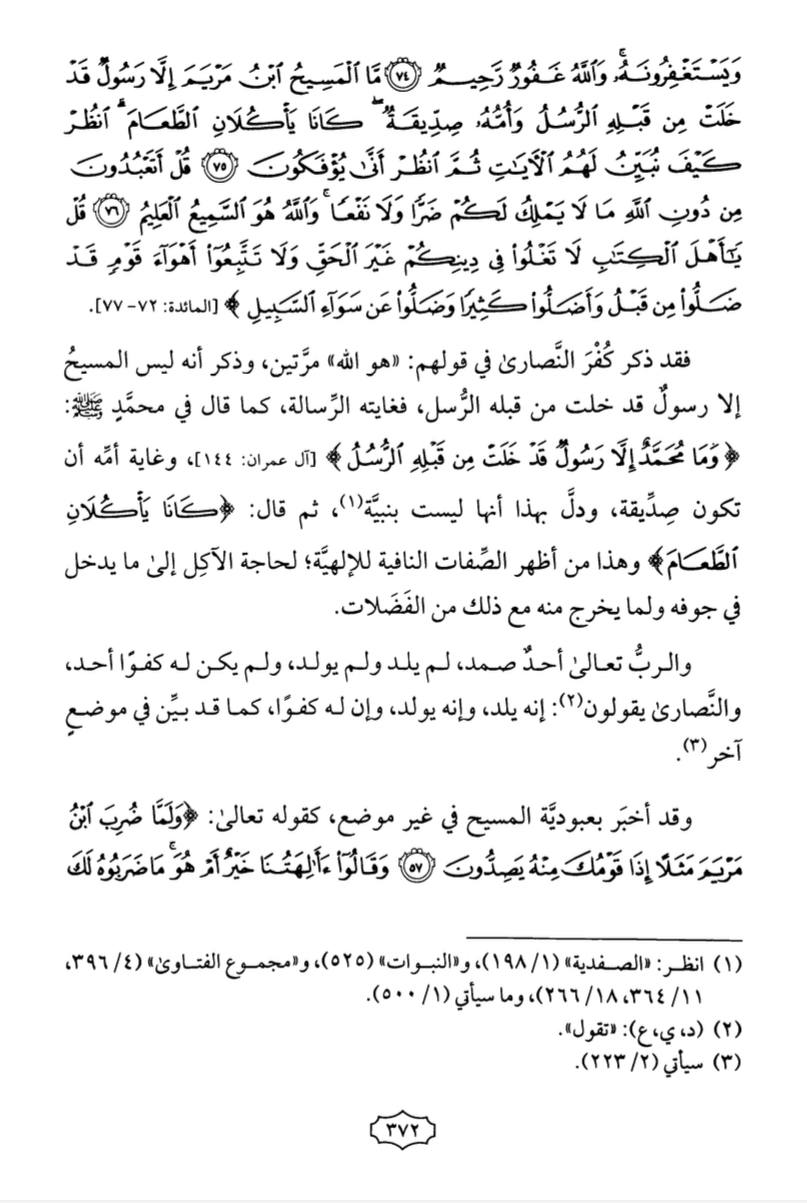 وَيَسْتَغْفِرُونَهُۥ ۚ وَٱللَّهُ غَفُورٌ رَّحِيمٌ ﴿٧٤﴾ مَّا ٱلْمَسِيحُ ٱبْنُ مَرْيَمَ إِلَّا رَسُولٌ قَدْ
خَلَتْ مِن قَبْلِهِ ٱلرُّسُلُ وَأُمُّهُۥ صِدِّيقَةٌ ۖ كَانَا يَأْكُلَانِ ٱلطَّعَامَ ۗ ٱنظُرْ
كَيْفَ نُبَيِّنُ لَهُمُ ٱلْآيَـٰتِ ثُمَّ ٱنظُرْ أَنَّىٰ يُؤْفَكُونَ ﴿٧٥﴾ قُلْ أَتَعْبُدُونَ
مِن دُونِ ٱللَّهِ مَا لَا يَمْلِكُ لَكُمْ ضَرًّا وَلَا نَفْعًا ۚ وَٱللَّهُ هُوَ ٱلسَّمِيعُ ٱلْعَلِيمُ ﴿٧٦﴾ قُلْ
يَـٰٓأَهْلَ ٱلْكِتَـٰبِ لَا تَغْلُوا۟ فِى دِينِكُمْ غَيْرَ ٱلْحَقِّ وَلَا تَتَّبِعُوٓا۟ أَهْوَآءَ قَوْمٍ قَدْ
ضَلُّوا۟ مِن قَبْلُ وَأَضَلُّوا۟ كَثِيرًا وَضَلُّوا۟ عَن سَوَآءِ ٱلسَّبِيلِ ﴾ [المائدة: ٧٢-٧٧].
فقد ذكر كُفْرَ النَّصارىٰ في قولهم: «هو الله» مرَّتين، وذكر أنه ليس المسيحُ
إلا رسولٌ قد خلت من قبله الرُّسل، فغايته الرِّسالة، كما قال في محمَّدٍ ﷺ:
﴿ وَمَا مُحَمَّدٌ إِلَّا رَسُولٌ قَدْ خَلَتْ مِن قَبْلِهِ ٱلرُّسُلُ ﴾ [آل عمران: ١٤٤]، وغاية أمِّه أن
تكون صِدِّيقة، ودلَّ بهذا أنها ليست بنبيَّة(١)، ثم قال: ﴿كَانَا يَأْكُلَانِ
ٱلطَّعَامَ﴾ وهذا من أظهر الصِّفات النافية للإلهيَّة؛ لحاجة الآكِل إلىٰ ما يدخل
في جوفه ولما يخرج منه مع ذلك من الفَضَلات.
والربُّ تعالىٰ أحدٌ صمد، لم يلد ولم يولد، ولم يكن له كفوًا أحد،
والنَّصارىٰ يقولون(٢): إنه يلد، وإنه يولد، وإن له كفوًا، كما قد بيِّن في موضعٍ
آخر(٣).
وقد أخبَر بعبوديَّة المسيح في غير موضع، كقوله تعالىٰ: ﴿وَلَمَّا ضُرِبَ ٱبْنُ
مَرْيَمَ مَثَلًا إِذَا قَوْمُكَ مِنْهُ يَصِدُّونَ ﴿٥٧﴾ وَقَالُوٓا۟ ءَأَـٰلِهَتُنَا خَيْرٌ أَمْ هُوَ ۚ مَا ضَرَبُوهُ لَكَ
(١) انظر: «الصفدية» (١/ ١٩٨)، و«النبوات» (٥٢٥)، و«مجموع الفتاوىٰ» (٤/ ٣٩٦،
١١/ ٣٦٤، ١٨/ ٢٦٦)، وما سيأتي (١/ ٥٠٠).
(٢) (د، ي، ع): «تقول».
(٣) سيأتي (٢/ ٢٢٣).
٣٧٢